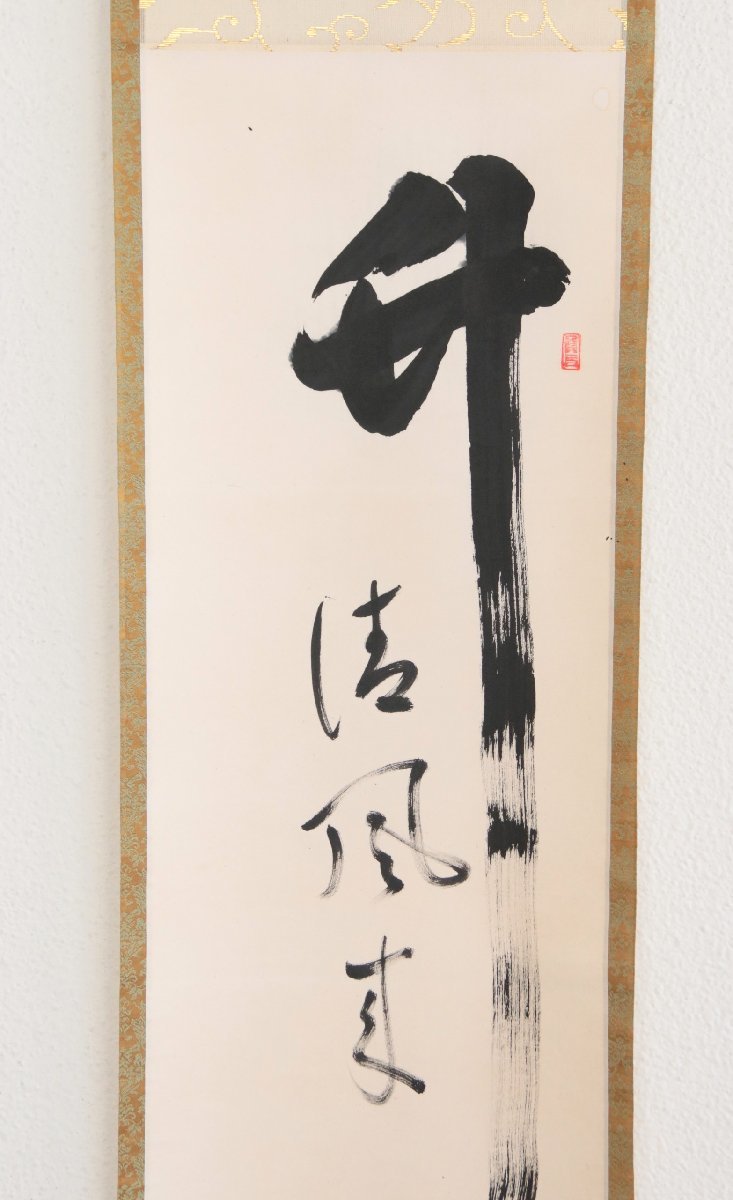 竹
清風来